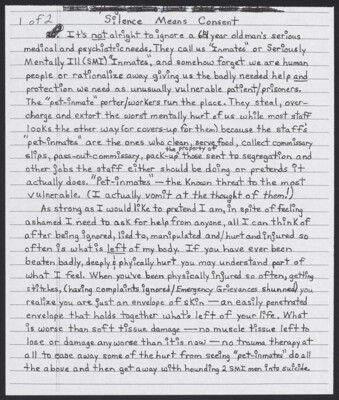 1 of 2
Silence Means Consent
It's not alright to ignore a 68 year old man's serious
medical and psychiatric needs. They call us "Inmates" or Seriously
Mentally Ill (SMI) "Inmates", and somehow forget we are human
people or rationalize away giving us the badly needed help and
protection we need as unusually vulnerable patient/prisoners.
The "pet-inmate" porter/workers run the place. They steal, over-
charge and extort the worst mentally hurt of us while most staff
looks the other way (or covers-up for them) because the staff's
"pet-inmates" are the ones who clean, serve food, collect commissary
slips, pass-out-commissary, pack-up the property of those sent to segregation and
other jobs the staff either should be doing or pretends it
actually does. "Pet-inmates" — the known threat to the most
vulnerable. (I actually vomit at the thought of them!)
As strong as I would like to pretend I am, in spite of feeling
ashamed I need to ask for help from anyone, all I can think of
after being ignored, lied to, manipulated and/hurt and injured so
often is what is left of my body. If you have ever been
beaten badly, deeply & phyically hurt you may understand part of
what I feel. When you've been physically injured so often, getting
stitches, (having complaints ignored/Emergency Grievances shunned) you
realize you are just an envelope of skin — an easily penetrated
envelope that holds together what's left of your life. What
is worse than soft tissue damage — no muscle tissue left to
lose or damage any worse than it is now — no trauma therapy at
all to ease away some of the hurt from seeing "pet-inmates" do all
the above and then get away with hounding 2 SMI men into suicide